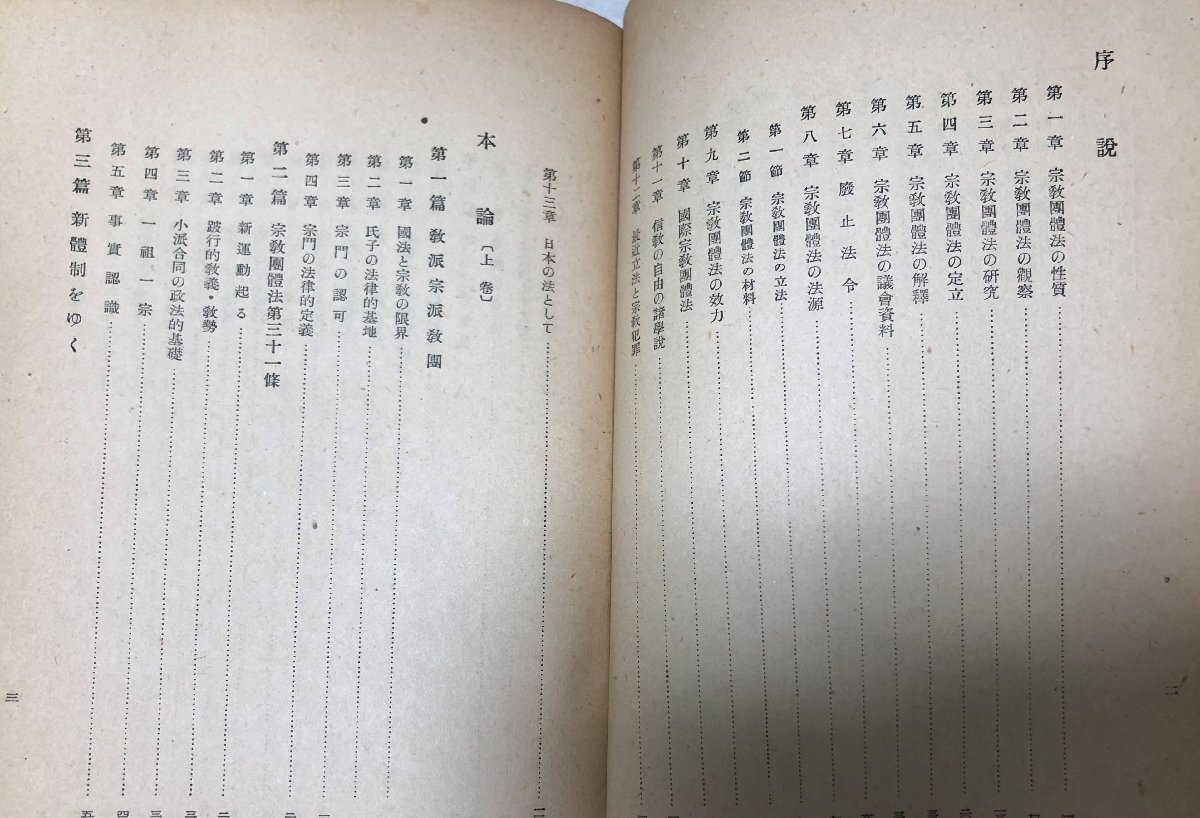 序說
第一章 宗敎團體法の性質
第二章 宗敎團體法の觀察
第三章 宗敎團體法の硏究
第四章 宗敎團體法の定立
第五章 宗敎團體法の解釋
第六章 宗敎團體法の議會資料
第七章 廢止法令
第八章 宗敎團體法の法源
第一節 宗敎團體法の立法
第二節 宗敎團體法の材料
第九章 宗敎團體法の效力
第十章 國際宗敎團體法
第十一章 信敎の自由の諸學說
第十二章 最近立法と宗敎犯罪
二
第十三章 日本の法として
本論〔上卷〕
第一篇 敎派宗派敎團
第一章 國法と宗敎の限界
第二章 氏子の法律的基地
第三章 宗門の認可
第四章 宗門の法律的定義
第二篇 宗敎團體法第三十一條
第一章 新運動起る
第二章 跛行的敎義・敎勢
第三章 小派合同の政法的基礎
第四章 一祖一宗
第五章 事實認識
第三篇 新體制をゆく
三